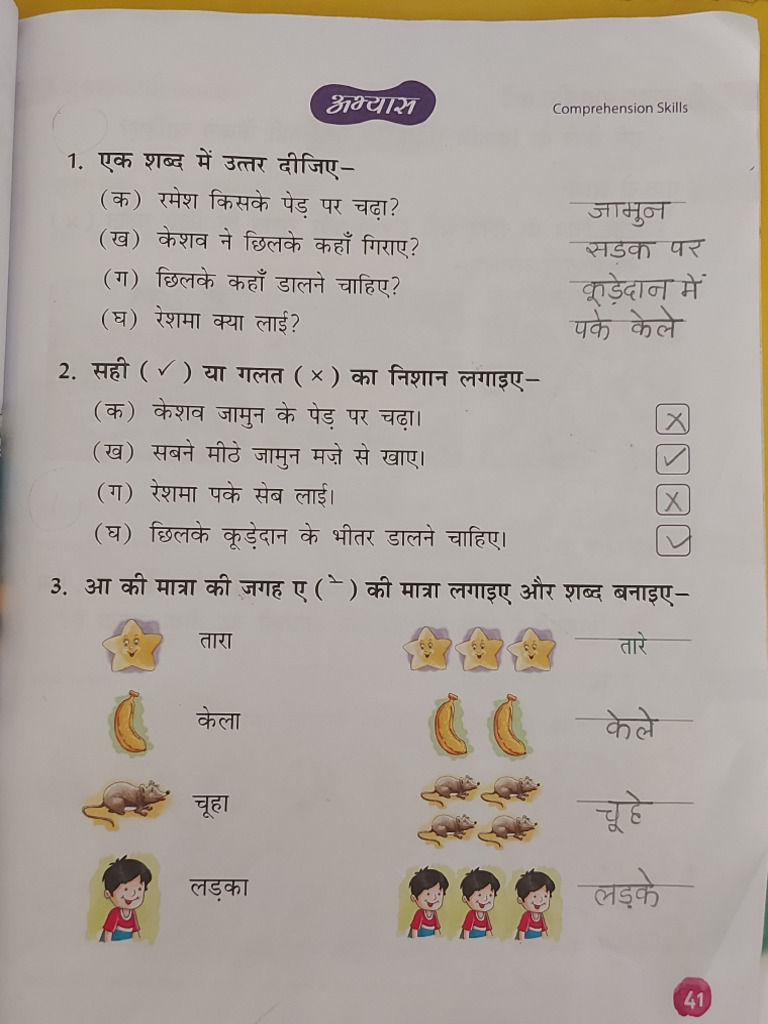 अभ्यास
Comprehension Skills
1. एक शब्द में उत्तर दीजिए–
(क) रमेश किसके पेड़ पर चढ़ा? जामुन
(ख) केशव ने छिलके कहाँ गिराए? सड़क पर
(ग) छिलके कहाँ डालने चाहिए? कूड़ेदान में
(घ) रेशमा क्या लाई? पके केले
2. सही (✓) या गलत (×) का निशान लगाइए–
(क) केशव जामुन के पेड़ पर चढ़ा। ×
(ख) सबने मीठे जामुन मज़े से खाए। ✓
(ग) रेशमा पके सेब लाई। ×
(घ) छिलके कूड़ेदान के भीतर डालने चाहिए। ✓
3. आ की मात्रा की जगह ए ( े ) की मात्रा लगाइए और शब्द बनाइए–
तारा तारे
केला केले
चूहा चूहे
लड़का लड़के
41